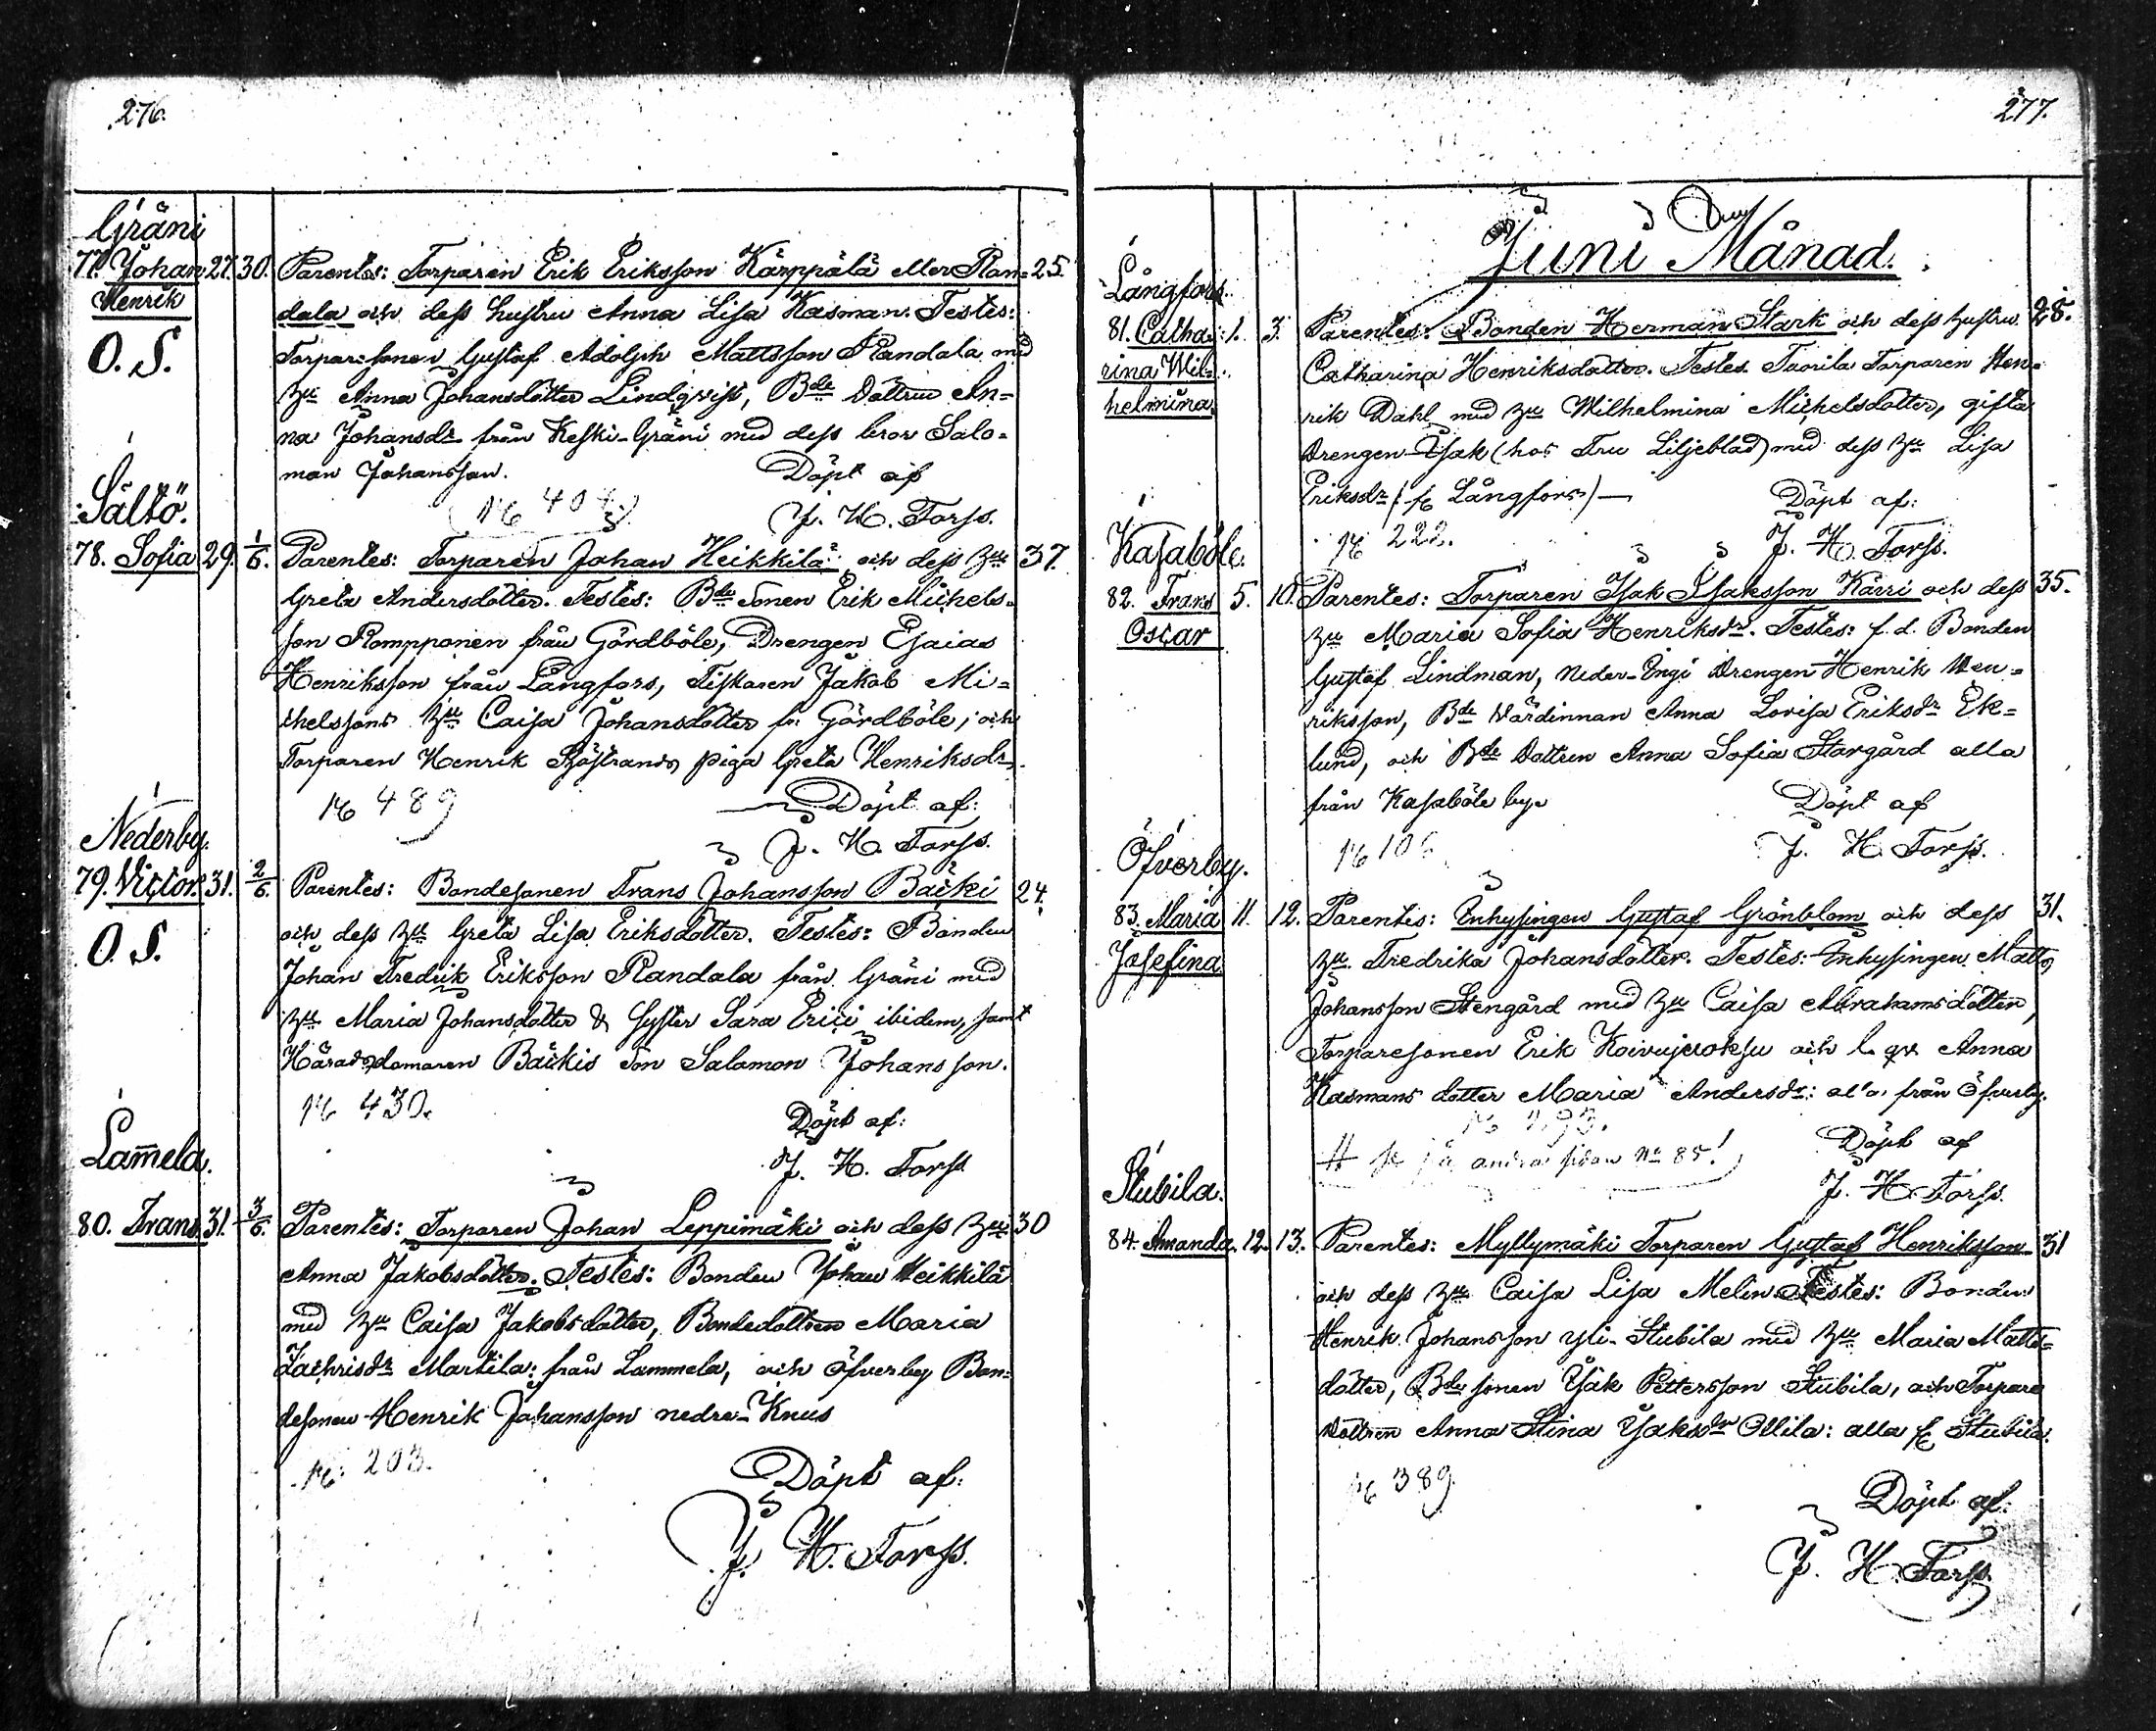 276.
Gräni
77. Johan 27. 30. Parentes: Torparen Erik Eriksson Kärppälä eller Ran= 25.
Henrik
dala och dess hustru Anna Lisa Kasman. Testes:
O. S.
Torparesonen Gustaf Adolph Mattsson Randala med
Hu Anna Johansdotter Lindqvist, Bde Dottren An=
na Johansdr från Keski-Gräni med dess bror Salo=
mon Johansson. Döpt af
404. J. H. Forss.
Sältö.
78. Sofia 29. 1/6. Parentes: Torparen Johan Heikkilä och dess Hu 37.
Greta Andersdotter. Testes: Bde Sonen Erik Michels=
son Rompponen från Gördböle, Drengen Esaias
Henriksson från Långfors, Fiskaren Jakob Mi=
chelssons Hu Caisa Johansdotter fr. Gördböle, och
Torparen Henrik Sjöstrands piga Greta Henriksdr.
489 Döpt af:
J. H. Forss.
Nederby.
79. Victor 31. 2/6. Parentes: Bondesonen Frans Johansson Bäcki 24.
och dess Hu Greta Lisa Eriksdotter. Testes: Bonden
O. S.
Johan Fredrik Eriksson Randala från Gräni med
Hu Maria Johansdotter & Syster Sara Erici ibidem, samt
Häradsdomaren Bäckis Son Salomon Johansson.
430. Döpt af:
J. H. Forss
Lam̄ela.
80. Frans 31. 3/6. Parentes: Torparen Johan Leppimäki och dess Hu 30
Anna Jakobsdotter. Testes: Bonden Johan Heikkilä
med Hu Caisa Jakobsdotter, Bondedottren Maria
Zachrisdr Martila: från Lammela, och Öfverby Bon=
desonen Henrik Johansson nedre-Knus
203. Döpt af:
J. H. Forss.
277.
Juni Månad.
Långfors.
81. Catha= 1. 3. Parentes: Bonden Herman Stark och dess hustru 28.
rina Wil=
Catharina Henriksdotter. Testes. Taorila Torparen Hen=
helmina
rik Dahl med Hu Wilhelmina Michelsdotter, gifta
Drengen Isak (hos Fru Liljeblad) med dess Hu Lisa
Eriksdr (: fr Långfors) — Döpt af:
222. J. H. Forss.
Kasaböle.
82. Frans 5. 10. Parentes: Torparen Isak Isaksson Kärri och dess 35.
Oscar
Hu Maria Sofia Henriksdr. Testes: f. d. Bonden
Gustaf Lindman, Neder-Engi Drengen Henrik Hen=
riksson, Bde Värdinnan Anna Lovisa Eriksdr Ek=
lund, och Bde Dottren Anna Sofia Stargård alla
från Kasaböle by. Döpt af
106 J. H. Forss.
Öfverby.
83. Maria 11. 12. Parentes: Enhysingen Gustaf Grönblom och dess 31.
Josefina
Hu Fredrika Johansdotter. Testes: Enhysingen Matts
Johansson Stengård med Hu Caisa Abrahamsdotter,
Torparesonen Erik Koivujuoksu och Anna
Kasmans dotter Maria Andersdr: alla från Öfverby.
# se på andra sidan No 85! Döpt af
J. H. Forss.
Stubila.
84. Amanda 12. 13. Parentes: Myllymäki Torparen Gustaf Henriksson 31
och dess Hu Caisa Lisa Melin Testes: Bonden
Henrik Johansson Yli-Stubila med Hu Maria Matts=
dotter, Bde sonen Isak Pettersson Stubila, och Torpare
Dottren Anna Stina Isaksdr Ollila: alla fr Stubila.
389. Döpt af:
J. H. Forss.